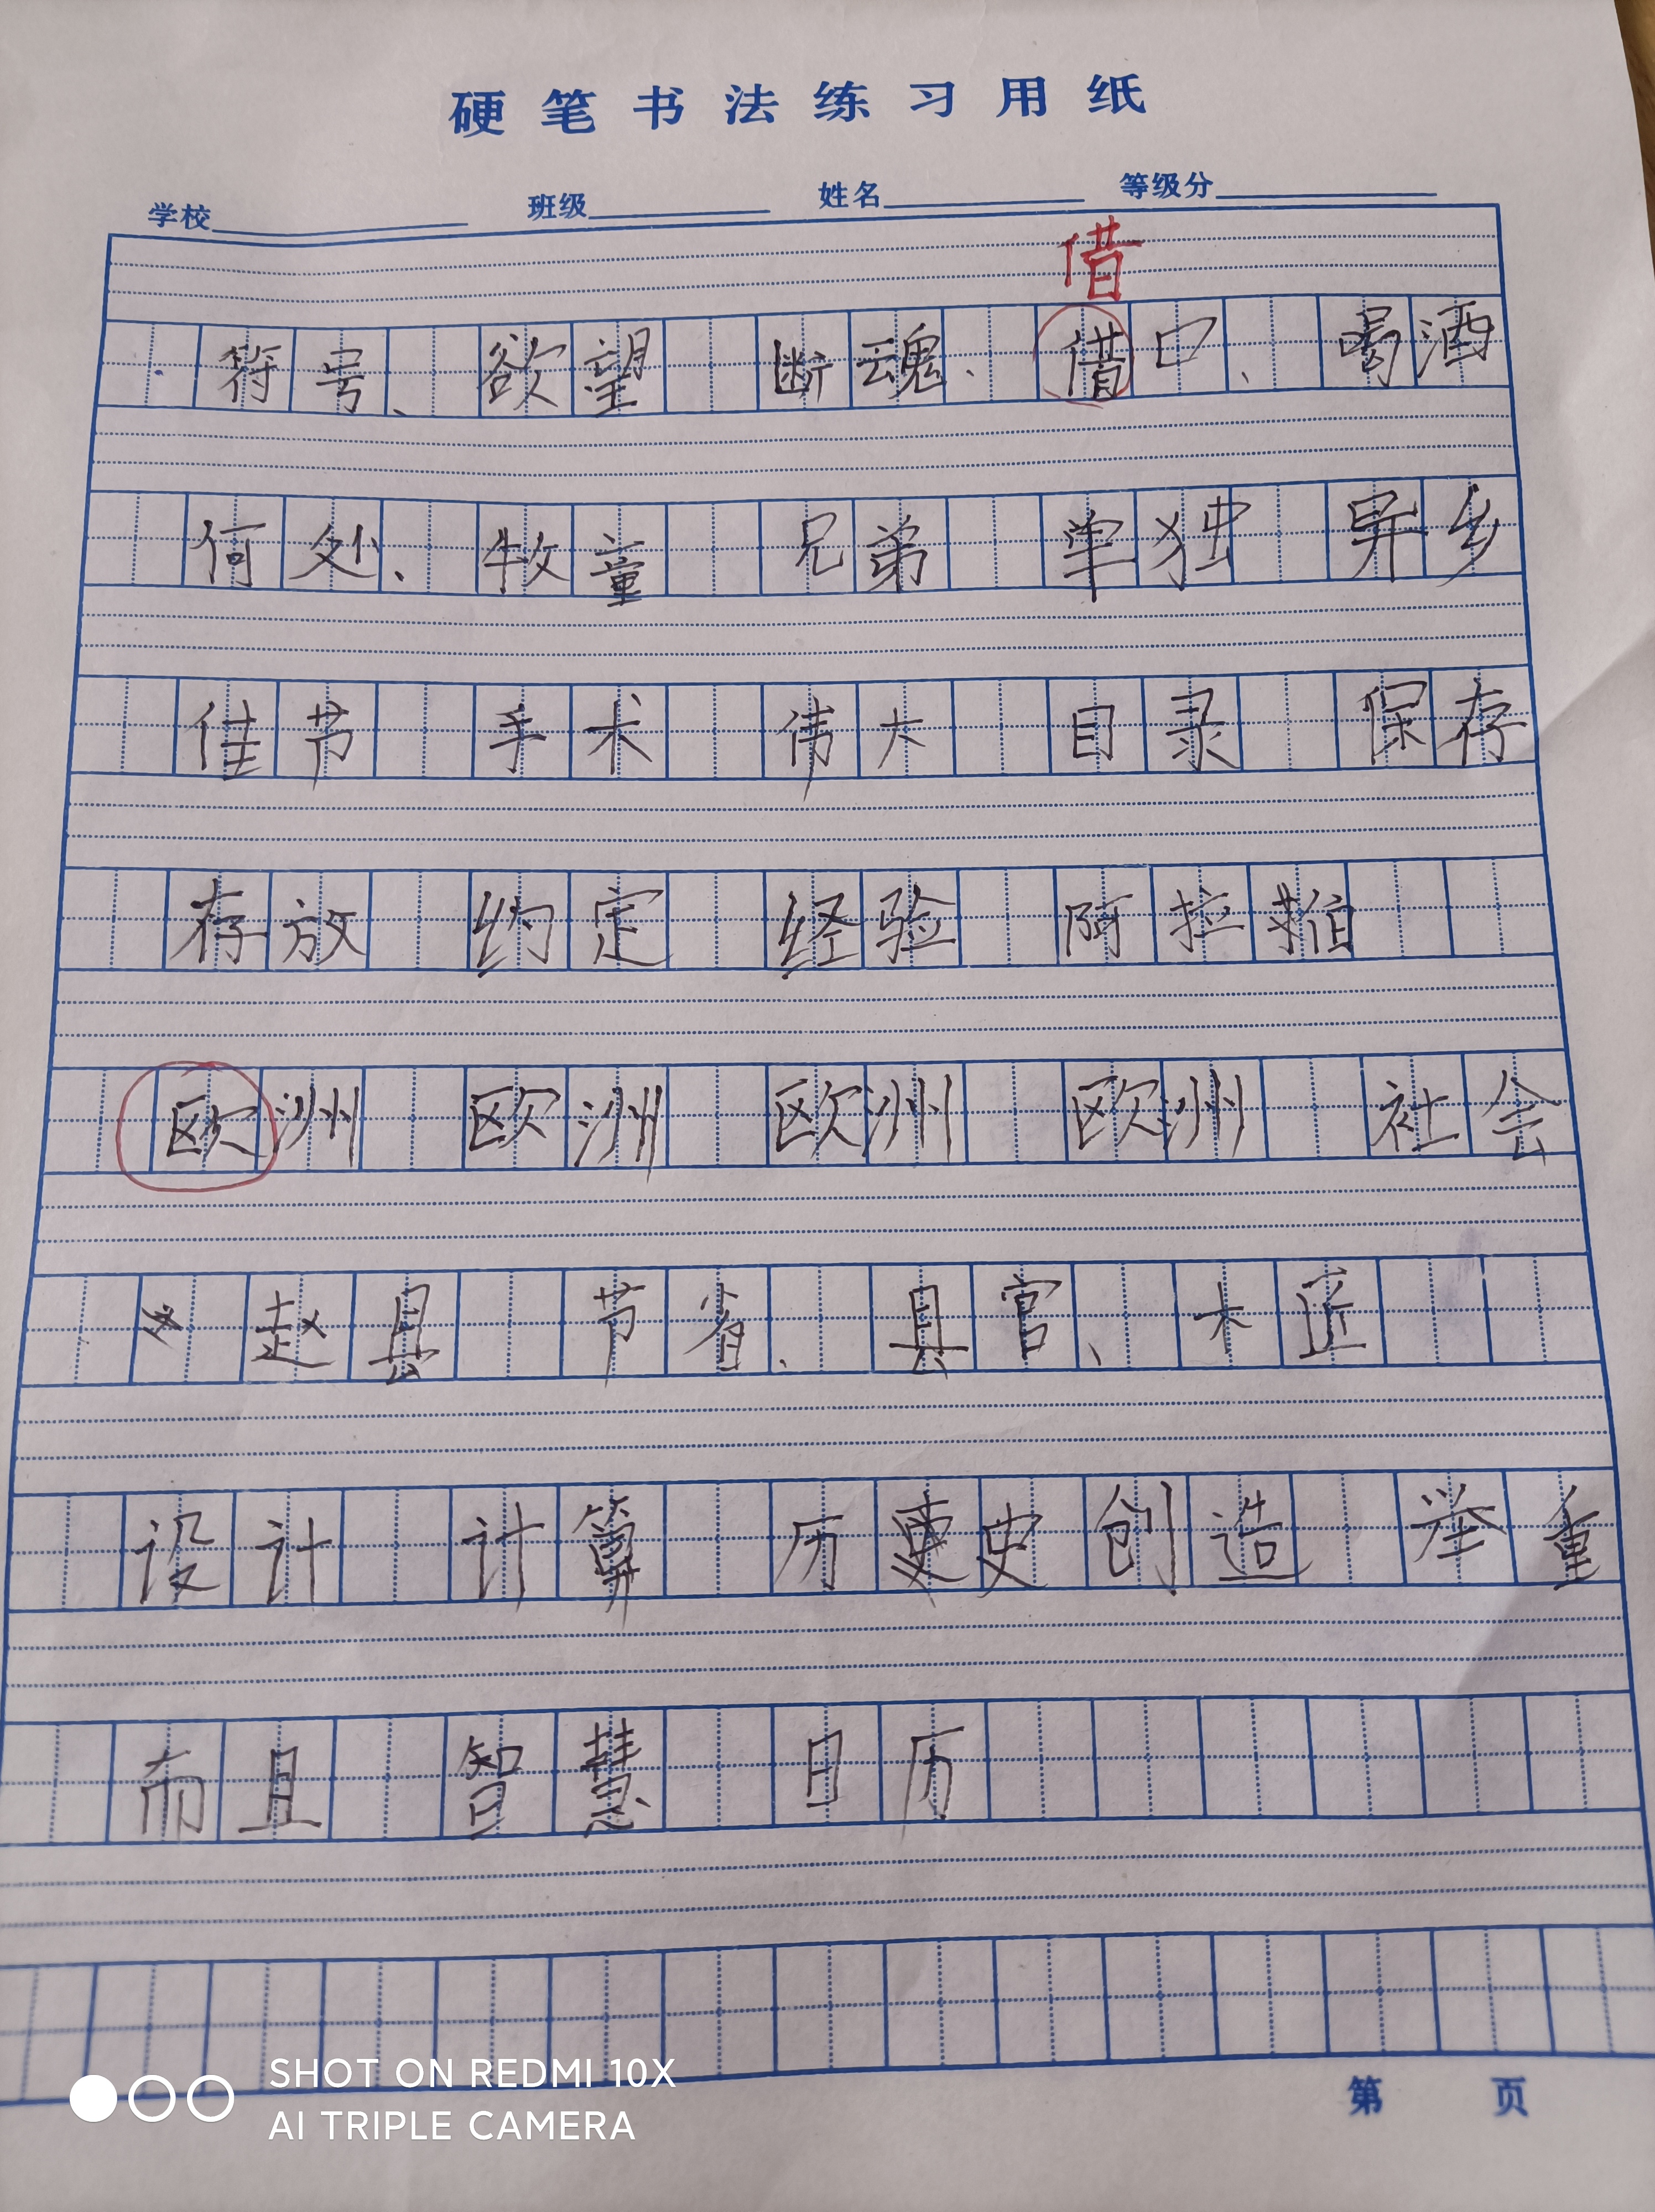 硬笔书法练习用纸
学校 班级 姓名 等级分
借
符号、欲望 断魂、借口、喝酒
何处、牧童 兄弟 单独 异乡
佳节 手术 伟大 目录 保存
存放 约定 经验 阿拉
欧洲 欧洲 欧洲 欧洲 社会
赵县 节省、县官、木匠
设计 计算 历史创造 举重
而且 智慧 日历
第 页
SHOT ON REDMI 10X
AI TRIPLE CAMERA